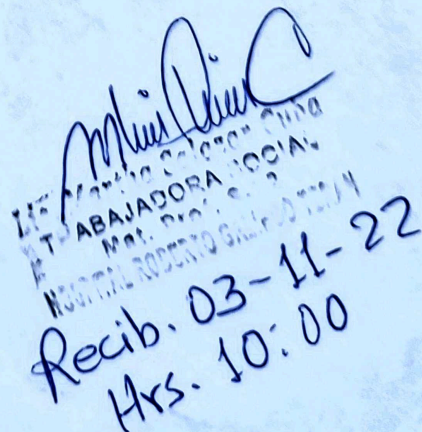 Lic. Martha Salazar Cuba
TRABAJADORA SOCIAL
Mat. Prof.
HOSPITAL ROBERTO GALINDO TERAN
Recib. 03-11-22
Hrs. 10:00